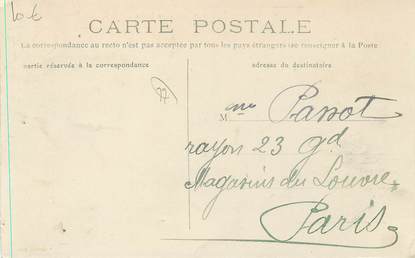 10 €
CARTE POSTALE
La correspondance au recto n'est pas acceptée par tous les pays étrangers (se renseigner à la Poste
partie réservée à la correspondance
adresse du destinataire
77
Mme Passot
rayon 23 gd
Magasins du Louvre
Paris